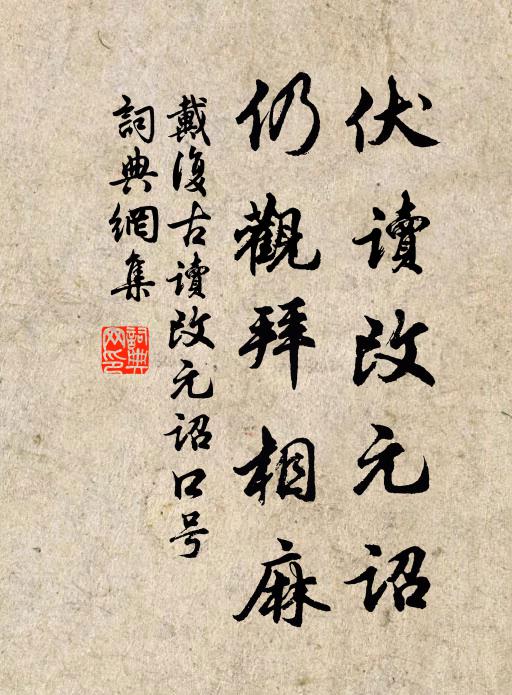 伏讀改元詔
仍觀拜相麻
戴復古讀改元詔口号
詞典網集
詞典网印